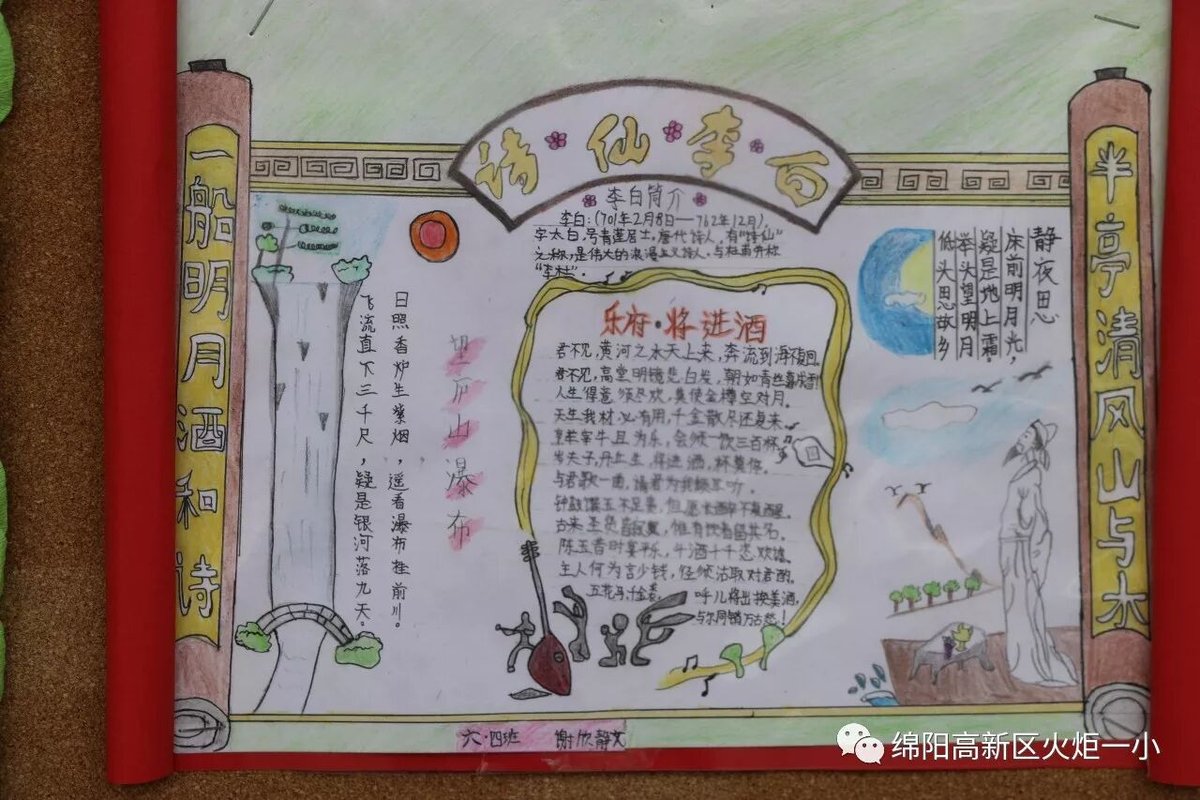 诗仙李白
一船明月酒和诗
半亭清风山与木
李白简介
李白:(701年2月8日—762年12月),
字太白,号青莲居士,唐代诗人,有"诗仙"
之称,是伟大的浪漫主义诗人,与杜甫并称
"李杜".
望庐山瀑布
日照香炉生紫烟,遥看瀑布挂前川。
飞流直下三千尺,疑是银河落九天。
乐府·将进酒
君不见,黄河之水天上来,奔流到海不復回.
君不见,高堂明镜悲白发,朝如青丝暮成雪
人生得意须尽欢,莫使金樽空对月.
天生我材必有用,千金散尽还复来.
烹羊宰牛且为乐,会须一饮三百杯.
岑夫子,丹丘生,将进酒,杯莫停.
与君歌一曲,请君为我倾耳听.
钟鼓馔玉不足贵,但愿长醉不复醒.
古来圣贤皆寂寞,惟有饮者留其名.
陈王昔时宴平乐,斗酒十千恣欢谑.
主人何为言少钱,径须沽取对君酌.
五花马,千金裘,呼儿将出换美酒,
与尔同销万古愁!
静夜思
床前明月光,
疑是地上霜。
举头望明月
低头思故乡
六·四班 谢欣静文
绵阳高新区火炬一小